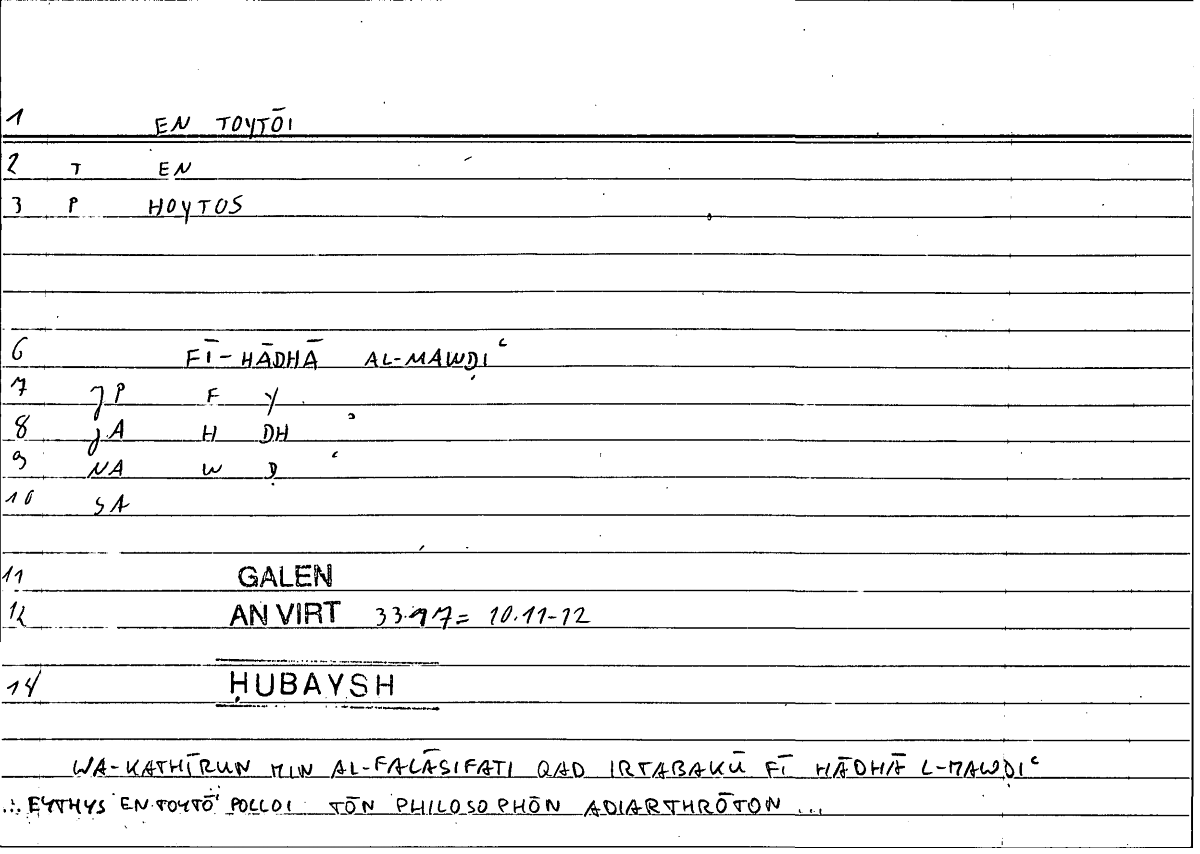 1 EN TOYTŌI
2 T EN
3 P HOYTOS
6 FĪ-HĀDHĀ AL-MAWḌIʿ
7 JP F Y
8 JA H DH ʾ
9 NA W Ḍ ʿ
10 SA
11 GALEN
12 AN VIRT 33.17 = 10.11-12
14 ḤUBAYSH
WA-KATHĪRUN MIN AL-FALĀSIFATI QAD IRTABAKŪ FĪ HĀDHĀ L-MAWḌIʿ
... EYTHYS EN TOYTŌI POLLOI TŌN PHILOSOPHŌN ADIARTHRŌTON ...